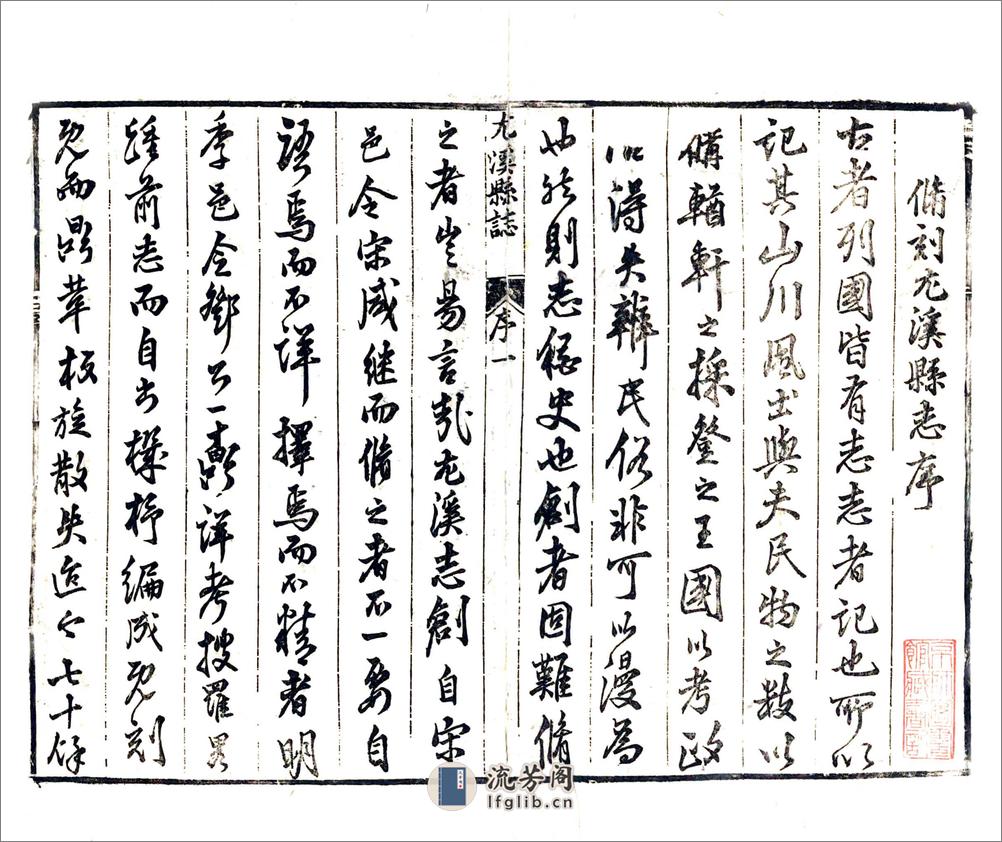 脩刻尤溪縣志序
古者列國皆有志志者記也所以
記其山川風土與夫民物之数以
備輶軒之採登之王國以考政
治得失辨民俗非可以漫為
也然則志猶史也創者固難脩
尤溪縣誌 序一
之者豈易言哉尤溪志創自宋
邑令宋咸继而脩之者不一要自
語焉而不詳擇焉而不精者明
季邑令鄧公一鼒詳考搜羅畧
踵前志而自出機杼編成既刻
既而鼎革板旋散失迄今七十馀
流芳阁
lfglib.cn